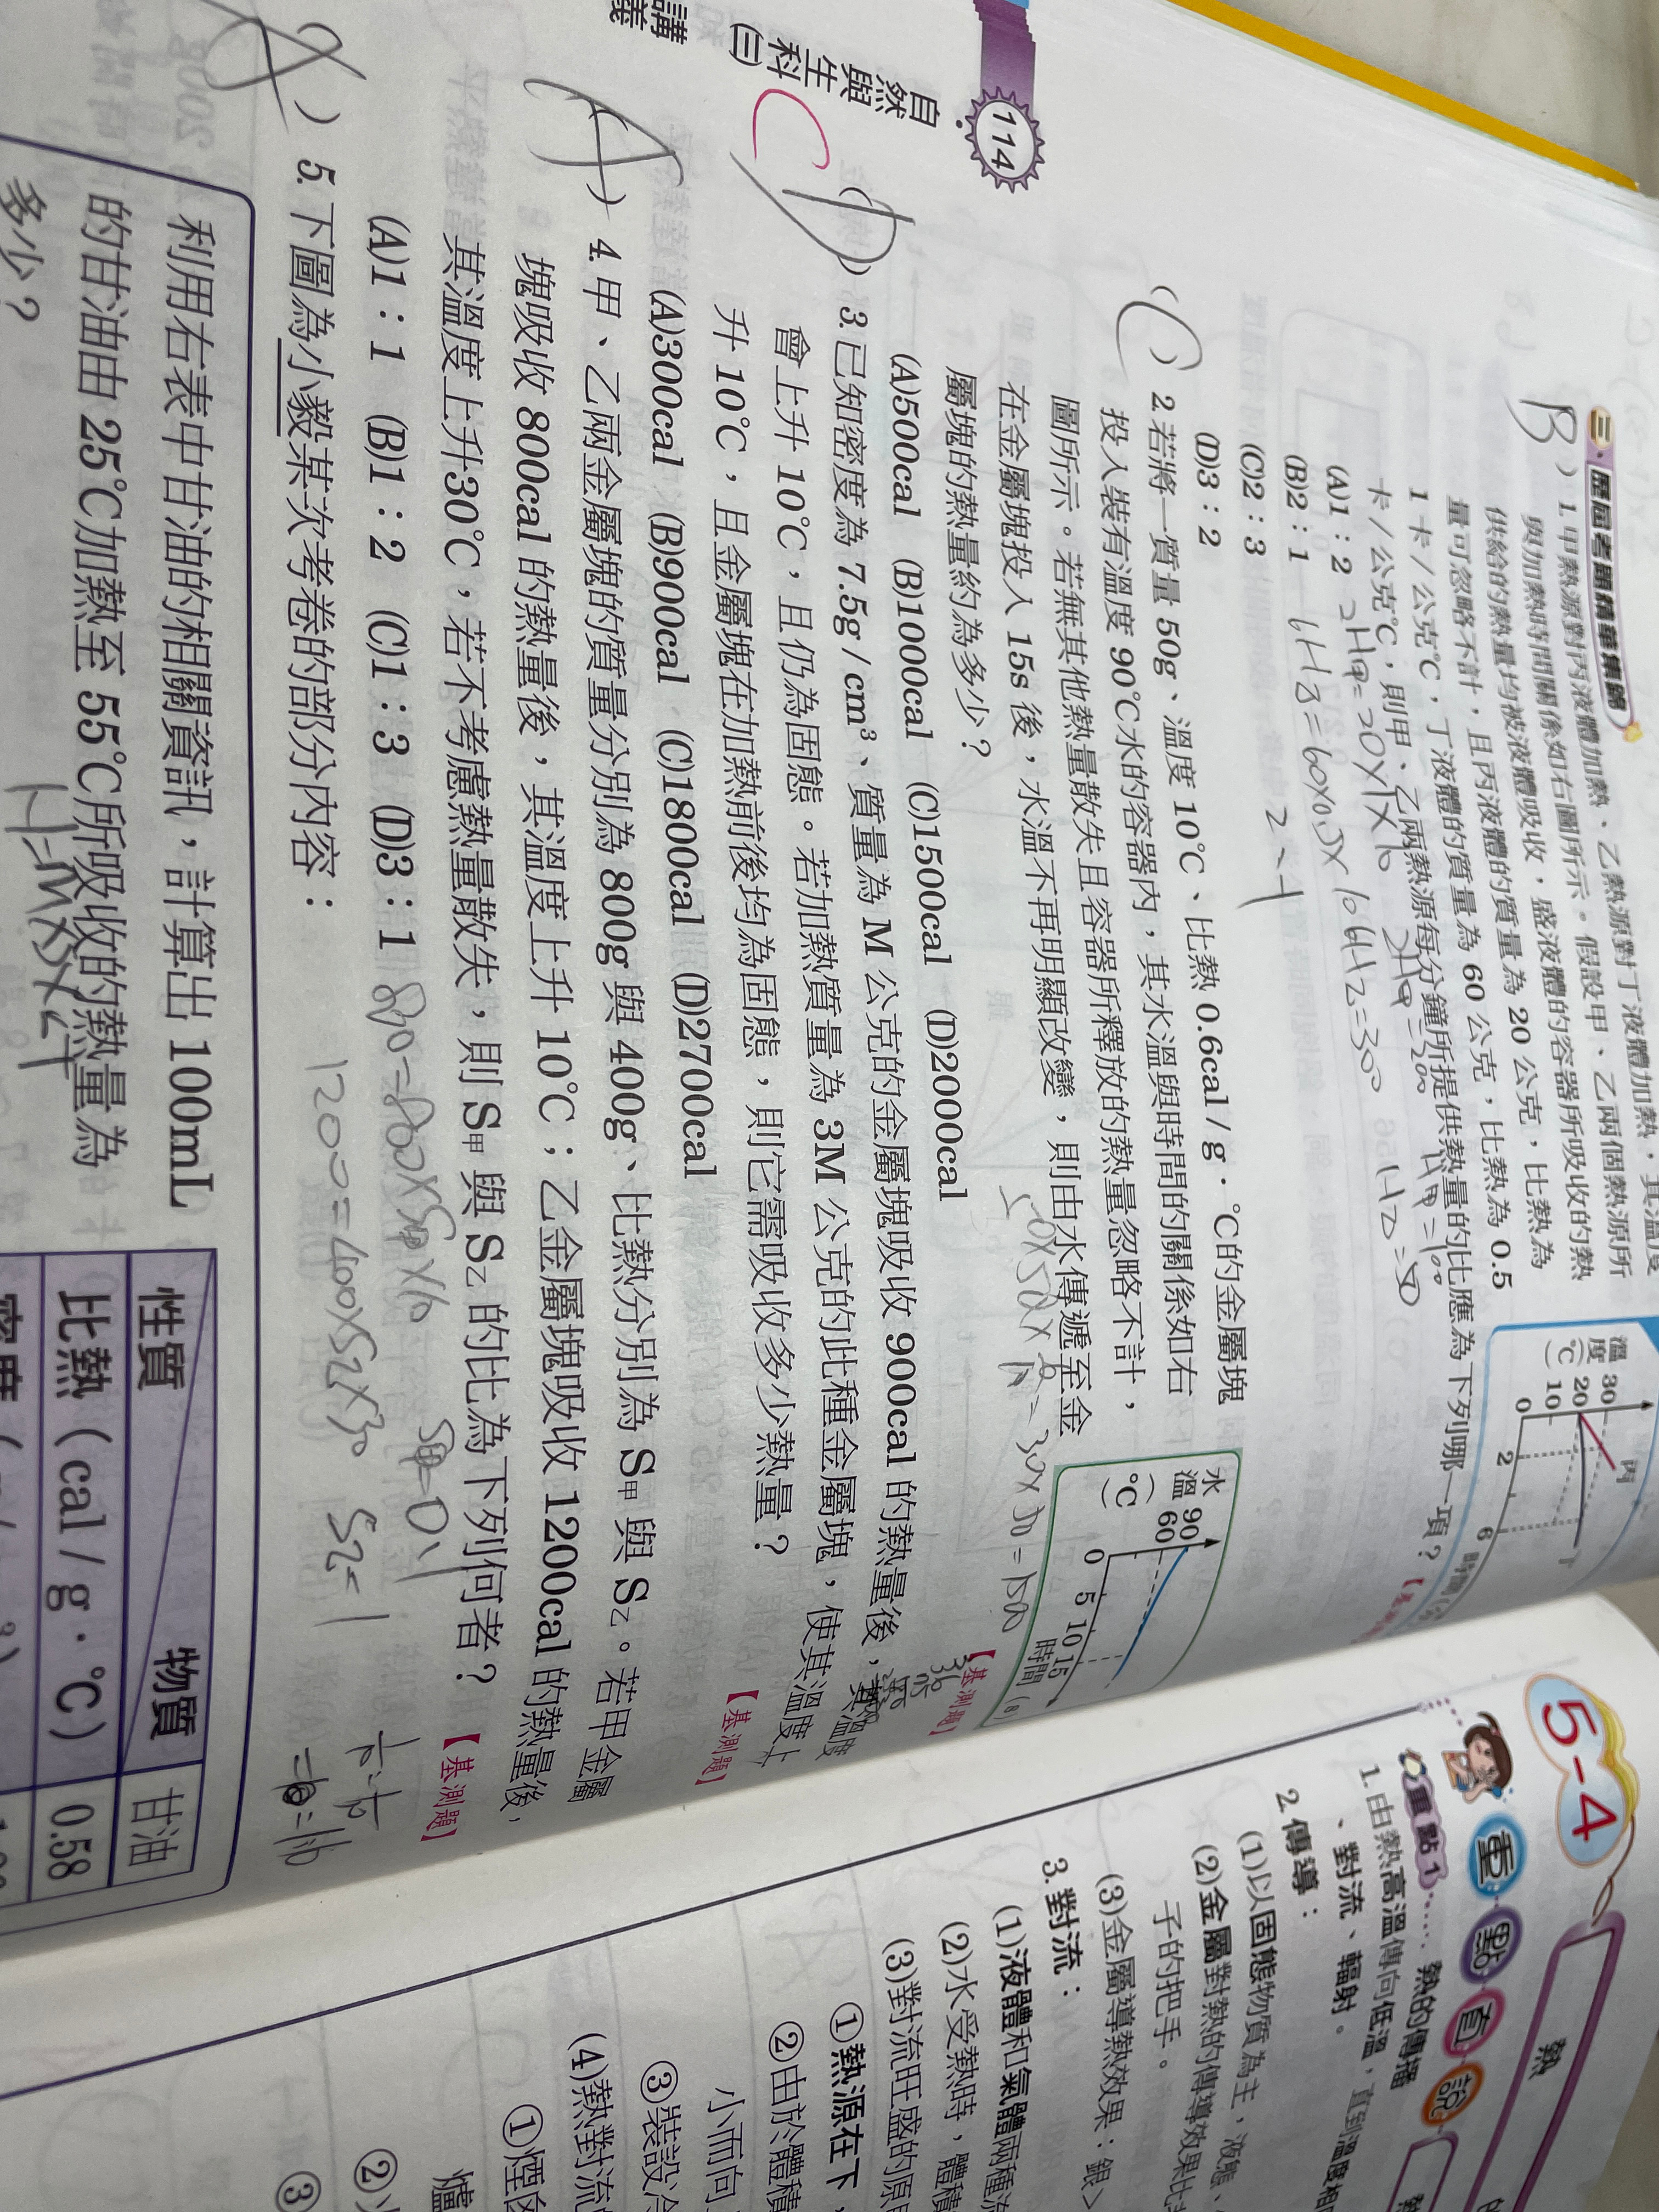 三、歷屆考題精華集錦
B ) 1. 甲熱源對丙液體加熱、乙熱源對丁液體加熱，其溫度
與加熱時間關係如右圖所示。假設甲、乙兩個熱源所
供給的熱量均被液體吸收，盛液體的容器所吸收的熱
量可忽略不計，且丙液體的質量為 20 公克，比熱為
1 卡／公克℃，丁液體的質量為 60 公克，比熱為 0.5
卡／公克℃，則甲、乙兩熱源每分鐘所提供熱量的比應為下列哪一項？
(A)1：2
(B)2：1
(C)2：3
(D)3：2
溫度(℃)
30
20
10
0
2
6
丙
(C) 2. 若將一質量 50g、溫度 10℃、比熱 0.6cal / g · ℃的金屬塊
投入裝有溫度 90℃水的容器內，其水溫與時間的關係如右
圖所示。若無其他熱量散失且容器所釋放的熱量忽略不計，
在金屬塊投入 15s 後，水溫不再明顯改變，則由水傳遞至金
屬塊的熱量約為多少？
【基測題】
(A)500cal (B)1000cal (C)1500cal (D)2000cal
水溫(℃)
90
60
0 5 10 15
時間 (s)
C
) 3. 已知密度為 7.5g / cm³、質量為 M 公克的金屬塊吸收 900cal 的熱量後，其溫度
會上升 10℃，且仍為固態。若加熱質量為 3M 公克的此種金屬塊，使其溫度上
升 10℃，且金屬塊在加熱前後均為固態，則它需吸收多少熱量？
【基測題】
(A)300cal (B)900cal (C)1800cal (D)2700cal
(A) 4. 甲、乙兩金屬塊的質量分別為 800g 與 400g、比熱分別為 S甲 與 S乙。若甲金屬
塊吸收 800cal 的熱量後，其溫度上升 10℃；乙金屬塊吸收 1200cal 的熱量後，
其溫度上升30℃，若不考慮熱量散失，則 S甲 與 S乙 的比為下列何者？
【基測題】
(A)1：1 (B)1：2 (C)1：3 (D)3：1
800=800×S甲×10
S甲=0.1
1200=400×S乙×30
) 5. 下圖為小毅某次考卷的部分內容：
利用右表中甘油的相關資訊，計算出 100mL
的甘油由 25℃加熱至 55℃所吸收的熱量為
多少？
H=MS△T
性質 物質 甘油
比熱（cal / g · ℃） 0.58
114
自然與生科(三)
講義
5-4
重點直說
熱
重點 1
熱的傳播
1. 由熱高溫傳向低溫，直到溫度相
、對流、輻射。
2. 傳導：
(1)以固態物質為主，液態、
(2)金屬對熱的傳導效果比
子的把手。
(3)金屬導熱效果：銀＞
3. 對流：
(1)液體和氣體兩種流
(2)水受熱時，體積
(3)對流旺盛的原
①熱源在下，
②由於體積
小而向
③裝設冷
(4)熱對流
①煙囪
爐
②
③